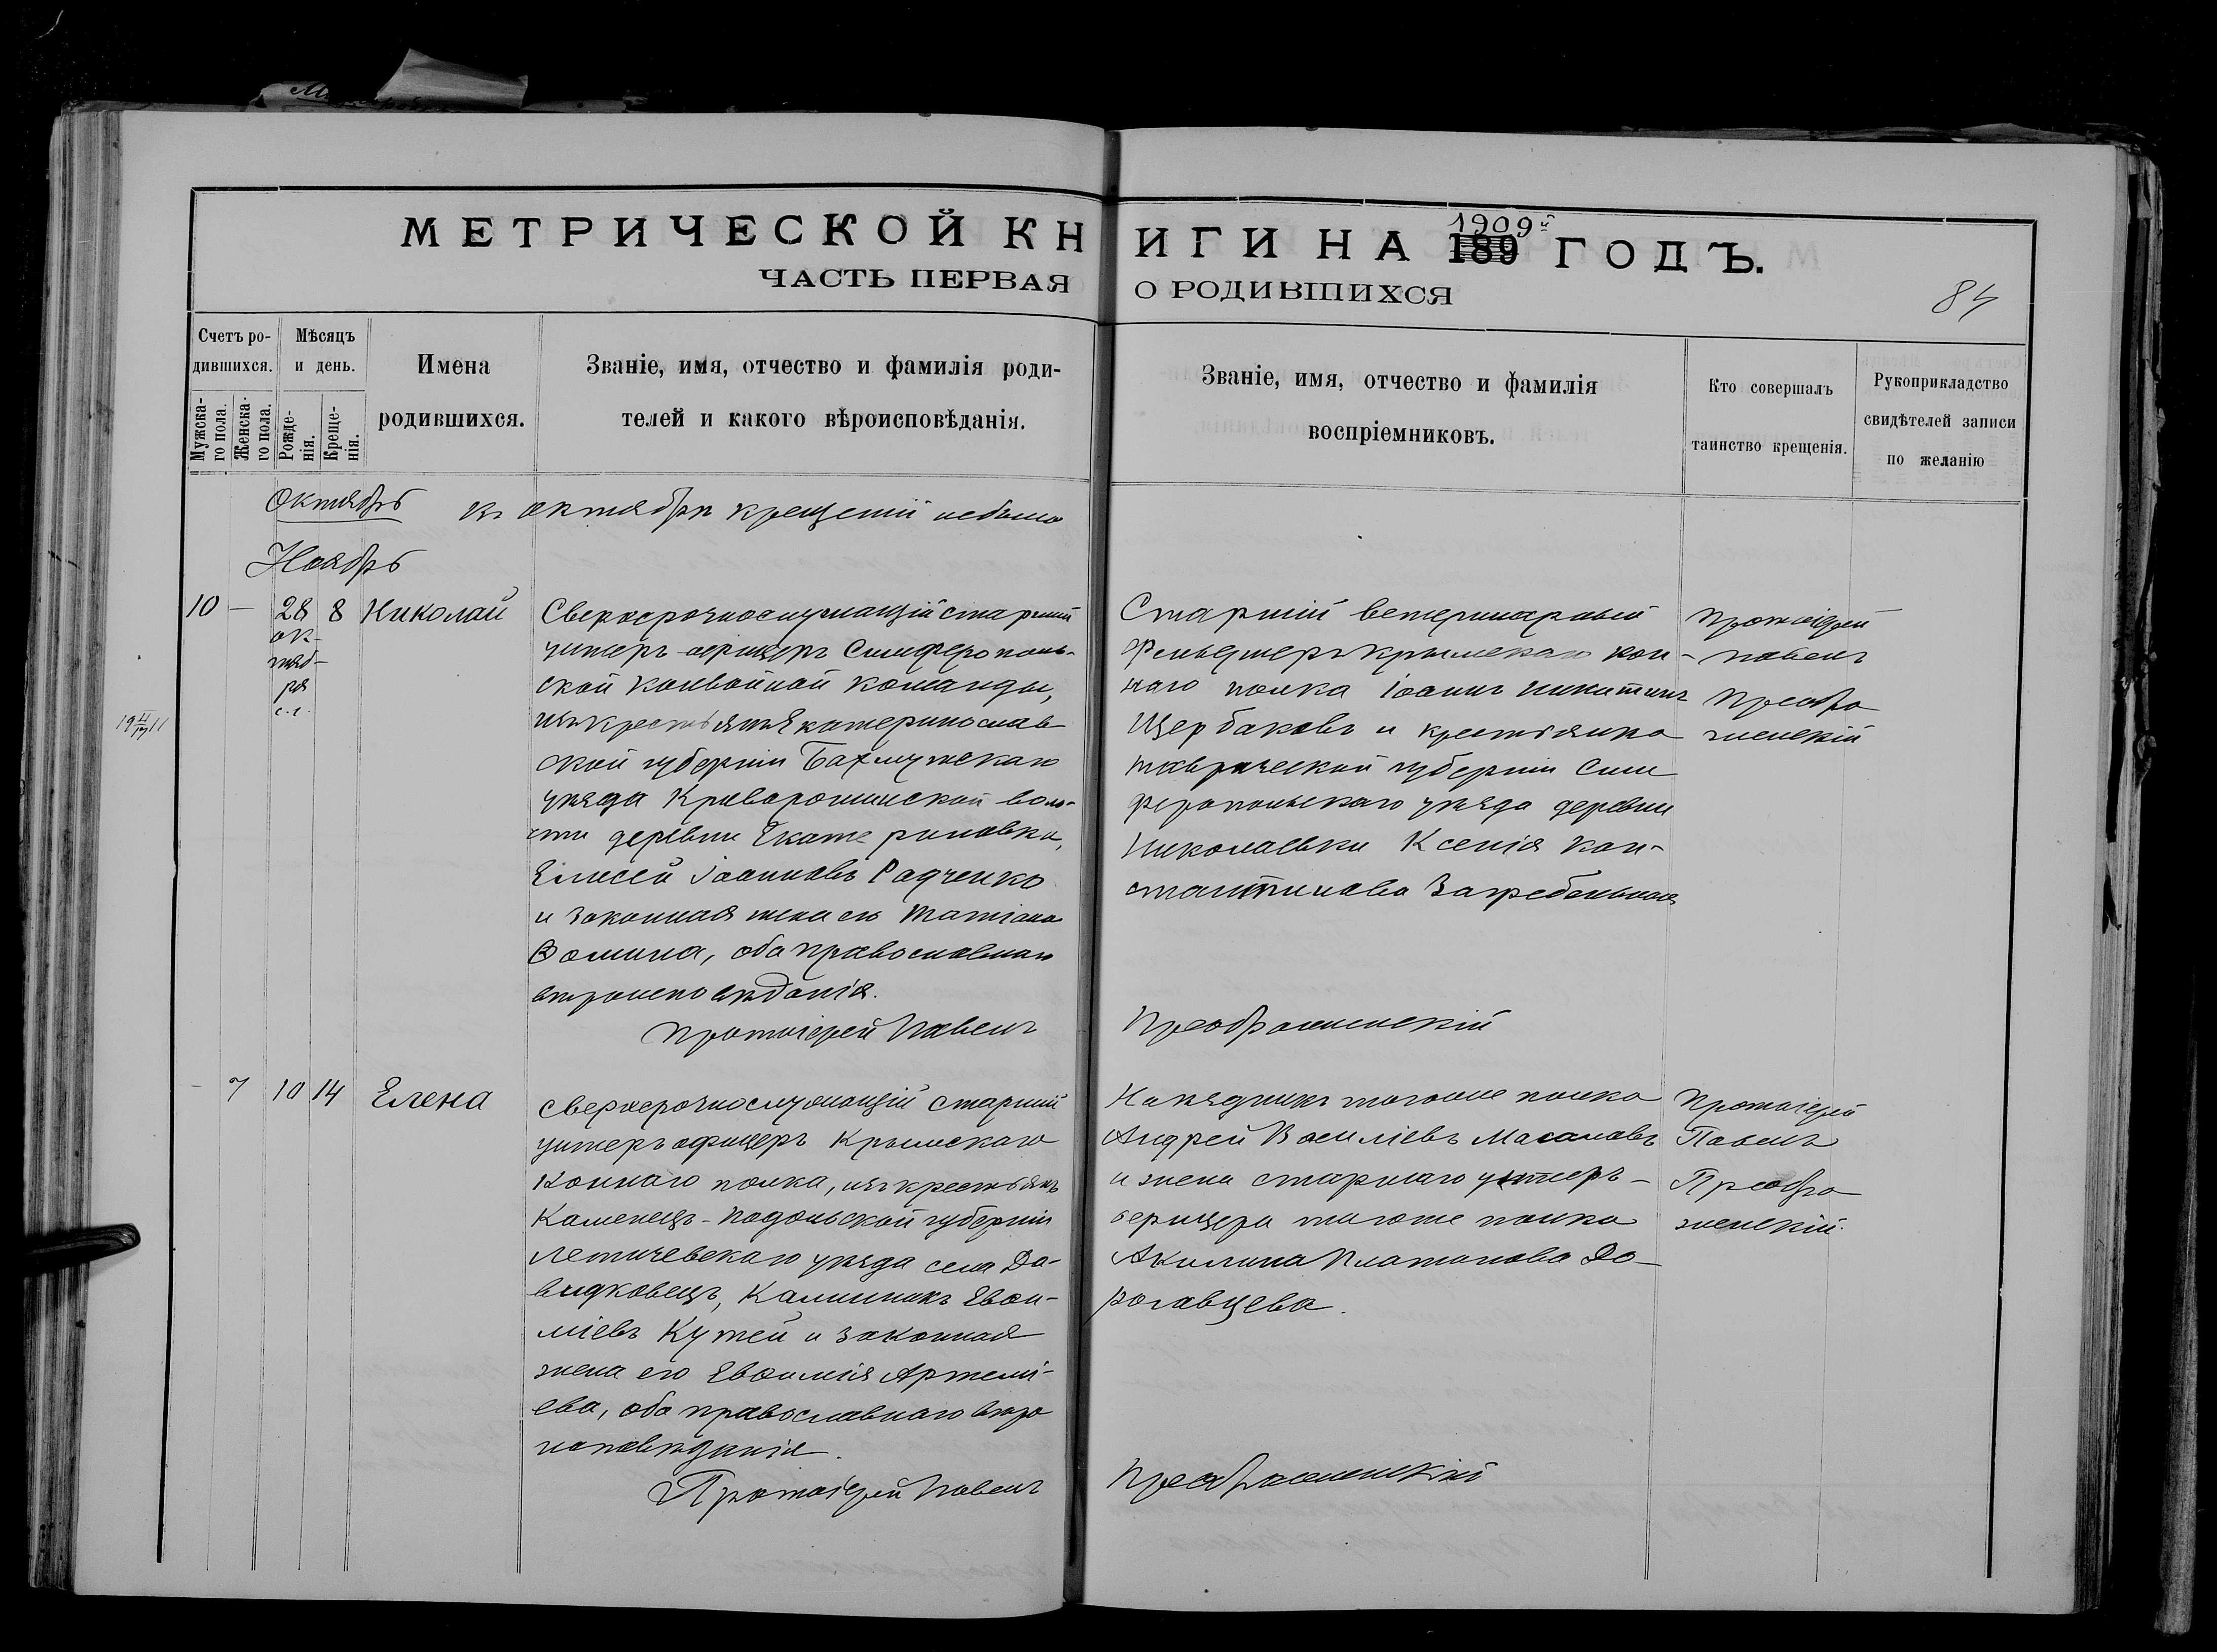 МЕТРИЧЕСКОЙ КНИГИ НА 189 1909й ГОДЪ.
ЧАСТЬ ПЕРВАЯ О РОДИВШИХСЯ
84
Счетъ родившихся.
Мужскаго пола.
Женскаго пола.
Мѣсяцъ и день.
Рожденія.
Крещенія.
Имена родившихся.
Званіе, имя, отчество и фамилія роди-
телей и какого вѣроисповѣданія.
Званіе, имя, отчество и фамилія
воспріемниковъ.
Кто совершалъ
таинство крещенія.
Рукоприкладство
свидѣтелей записи
по желанію
Октябрь
Въ октябрѣ крещеній небыло
Ноябрь
10 — 28 8 Николай
ок-
тяб-
ря
с.г.
Сверхсрочнослужащій старшій
унтеръ-офицеръ Симферополь-
ской конвойной команды,
изъ крестьянъ Екатеринослав-
ской губерніи Бахмутскаго
уѣзда Криворожской воло-
сти деревни Екатериновки,
Елисей Іоанновъ Радченко
и законная жена его Татіана
Ѳомина, оба православнаго
вѣроисповѣданія.
Протоіерей Павелъ
Старшій ветеринарный
фельдшеръ Крымскаго кон-
наго полка Іоаннъ Никитинъ
Щербаковъ и крестьянка
Таврической губерніи Сим
феропольскаго уѣзда деревни
Николаевки Ксенія Кон-
стантинова Загребельная
Преображенскій
Протоіерей
Павелъ
Преобра
женскій
— 7 10 14 Елена
Сверхсрочнослужащій старшій
унтеръ офицеръ Крымскаго
Коннаго полка, изъ крестьянъ
Каменецъ-Подольской губерніи
Летичевскаго уѣзда села Да-
видковецъ, Калинникъ Евѳи-
міевъ Кутей и законная
жена его Евѳимія Артемі-
ева, оба православнаго вѣро
исповѣданія.
Протоіерей Павелъ
Наѣздникъ тогоже полка
Андрей Василіевъ Масановъ
и жена старшаго унтеръ-
офицера тогоже полка
Акилина Платонова До-
рогавцева.
Преображенскій
Протоіерей
Павелъ
Преобра
женскій.